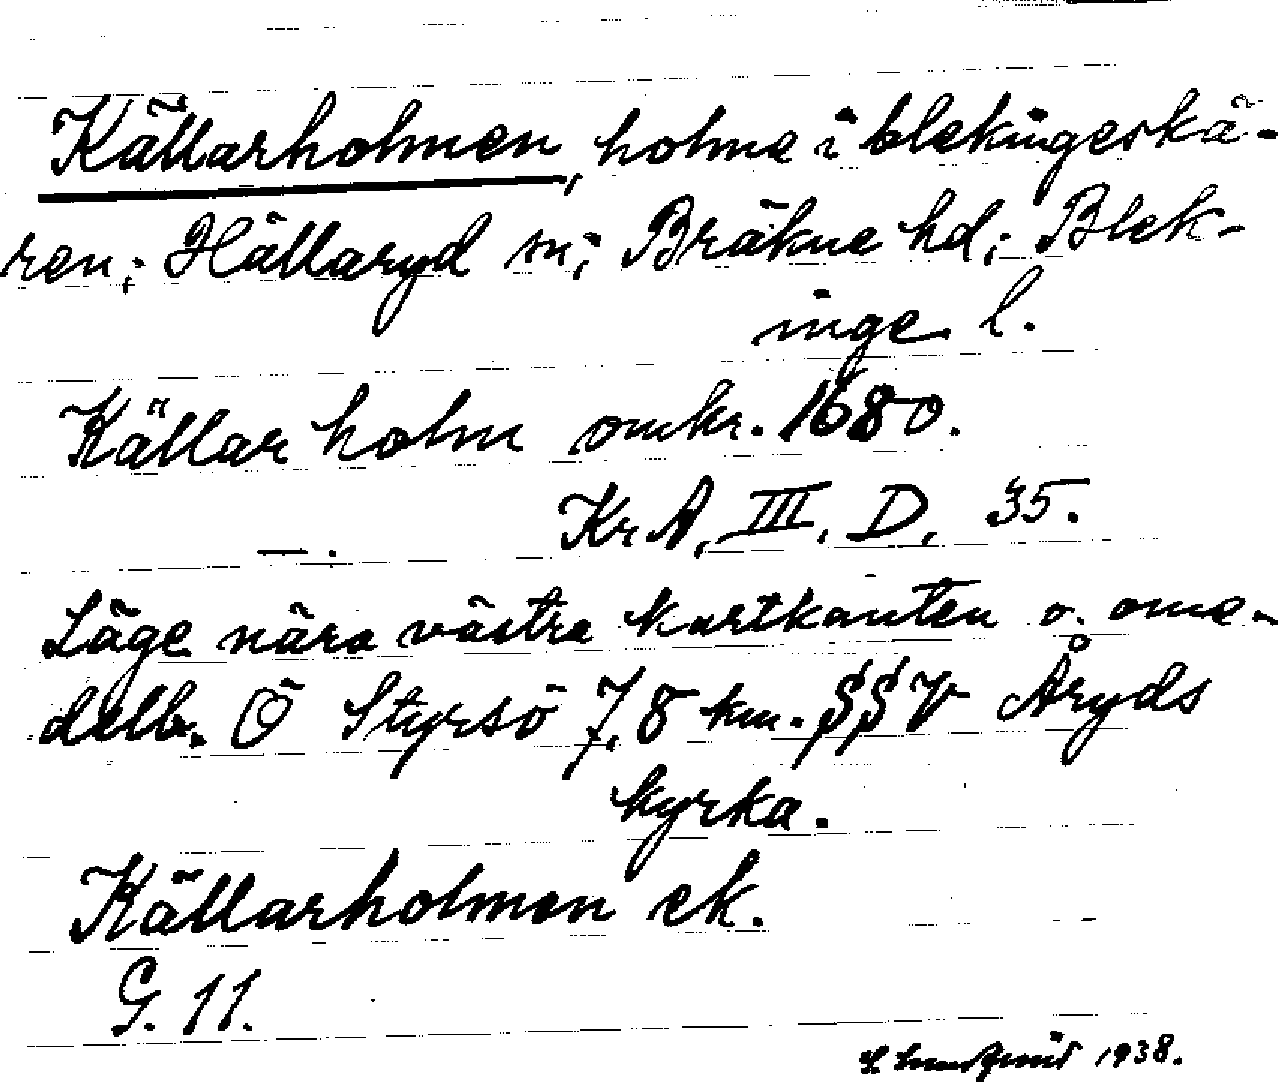 Källarholmen, holme i blekingeskä-
ren; Hällaryd sn; Bräkne hd; Blek-
inge l.
Källar holm omkr. 1680.
Kr A, III, D, 35.
Läge nära västra kartkanten o. ome-
delb. Ö Styrsö 7,8 km. SSV Åryds
kyrka.
Källarholmen ek.
G. 11.
1938.